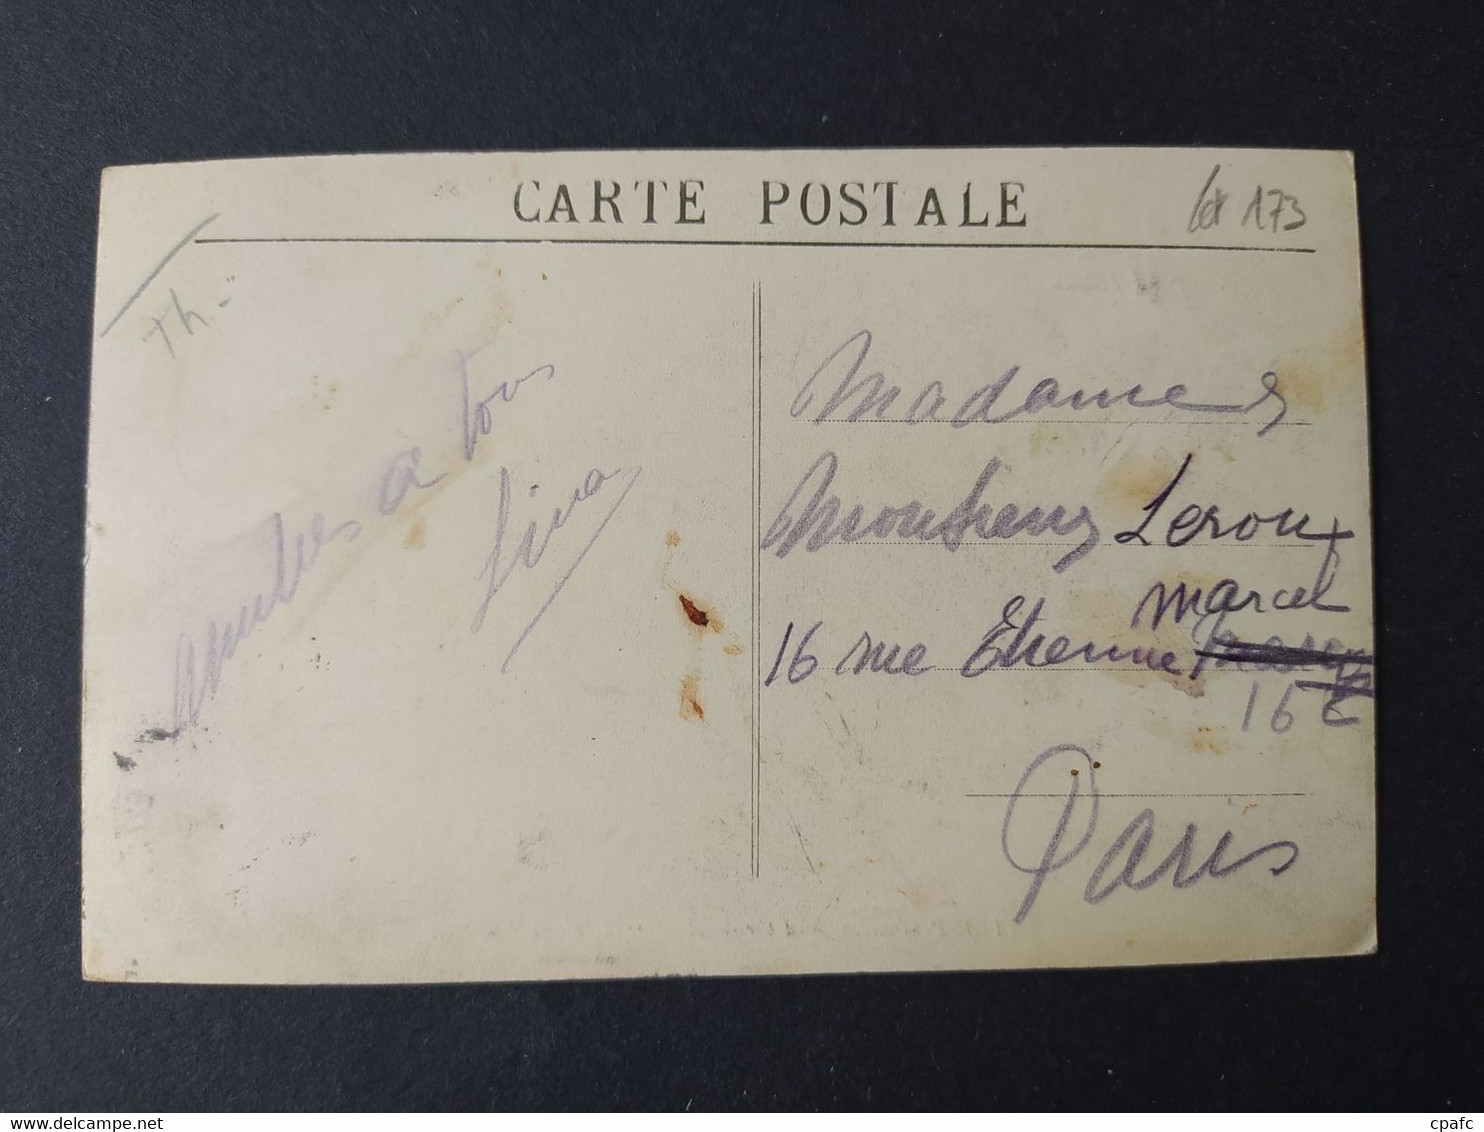 CARTE POSTALE
Lot 173
Th-
Amities a tous
Lina
Madame &
Monsieur Leroux
Marcel
16 rue Etienne
16 E
Paris
delcampe.net
cpafc